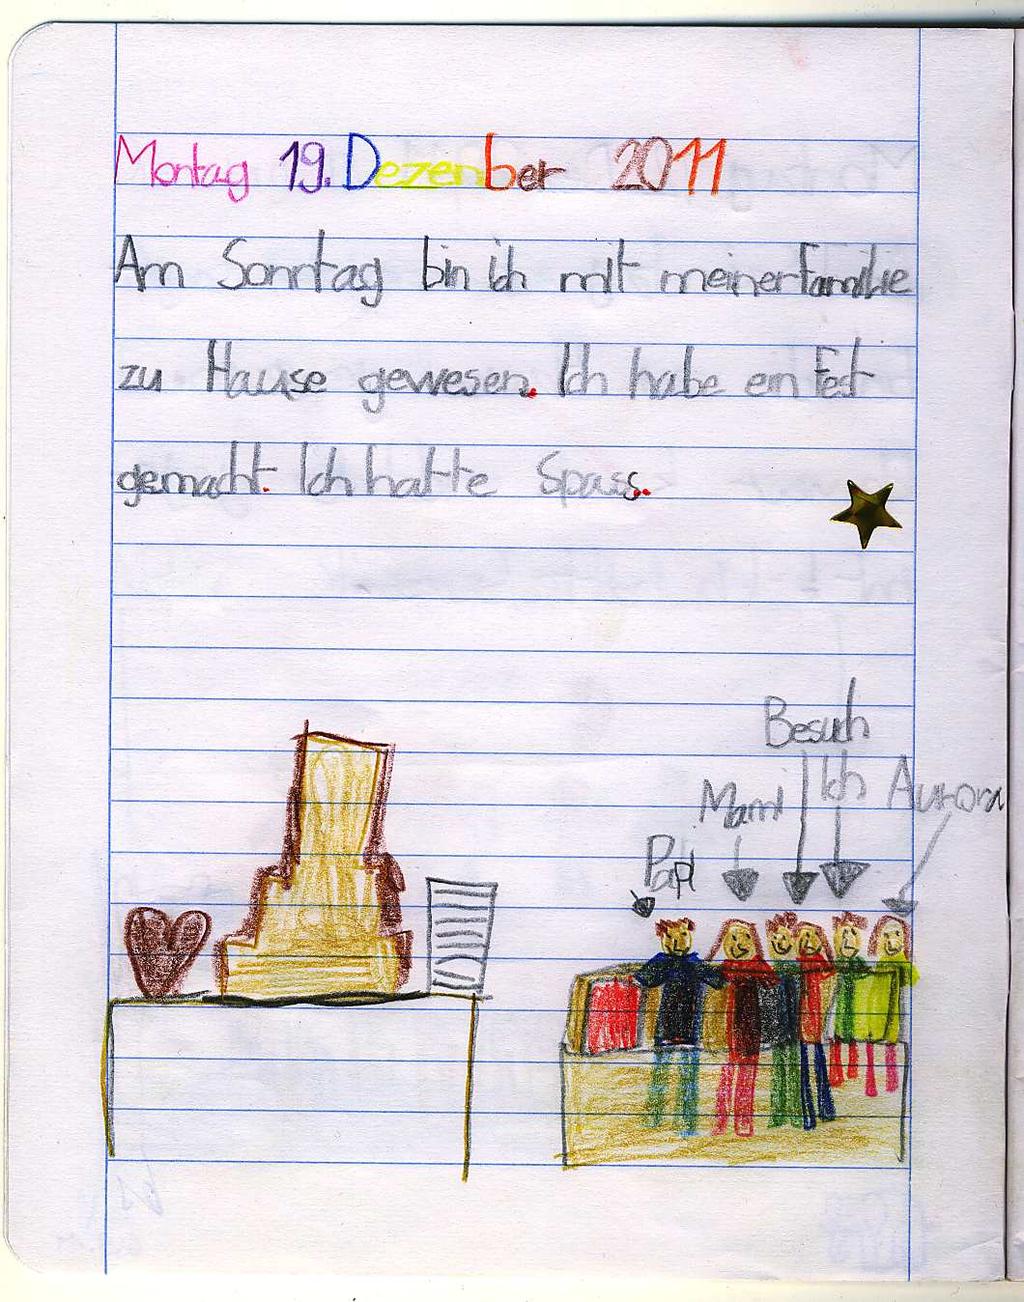 Montag 19. Dezember 2011
Am Sonntag bin ich mit meiner Familie
zu Hause gewesen. Ich habe ein Fest
gemacht. Ich hatte Spass.
Besuch
Mami Ich Aurora
Papi